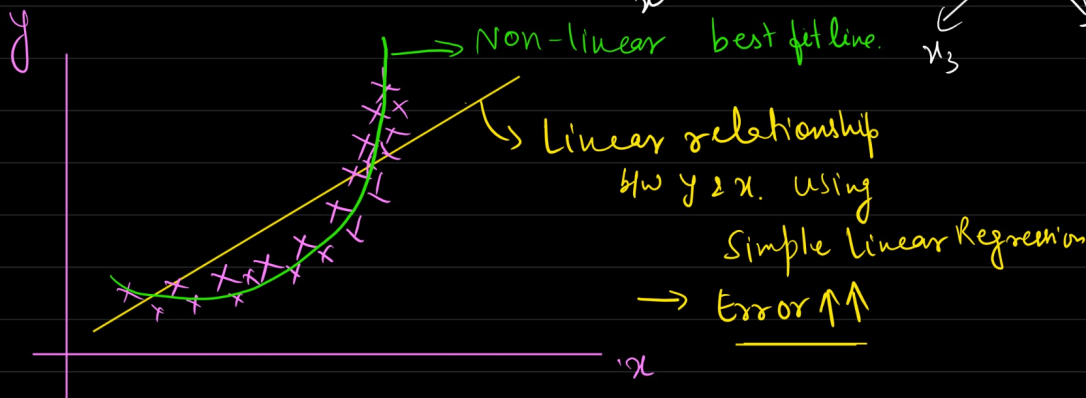 y
x₃
Non-linear best fit line.
Linear relationship
b/w y & x. using
Simple Linear Regression
→ Error ↑↑
x